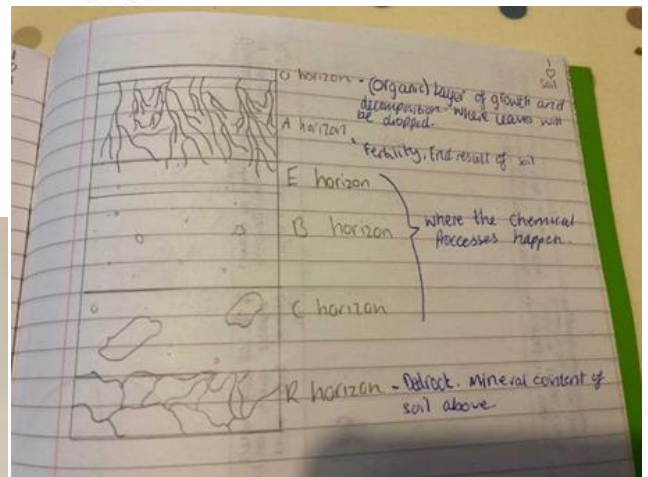 I
♡
soil
O horizon - (organic) Layer of growth and
decomposition. Where leaves will
be dropped.
A horizon
Fertility. End result of soil
E horizon
B horizon
where the chemical
Proccesses happen.
C horizon
R horizon - Bedrock. Mineral content of
soil above.